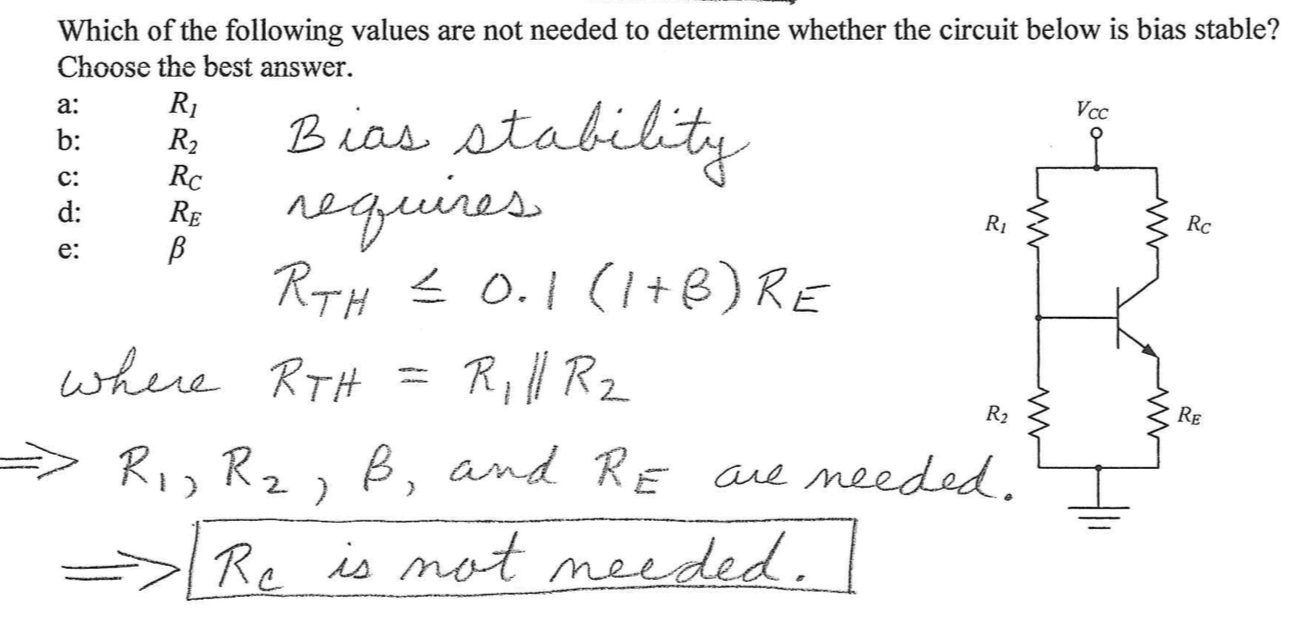 Which of the following values are not needed to determine whether the circuit below is bias stable?
Choose the best answer.
a: R1
b: R2
c: RC
d: RE
e: β
Bias stability
requires
RTH ≤ 0.1 (1+β) RE
where RTH = R1 || R2
⇒ R1, R2, β, and RE are needed.
⇒ Rc is not needed.
VCC
R1
RC
R2
RE